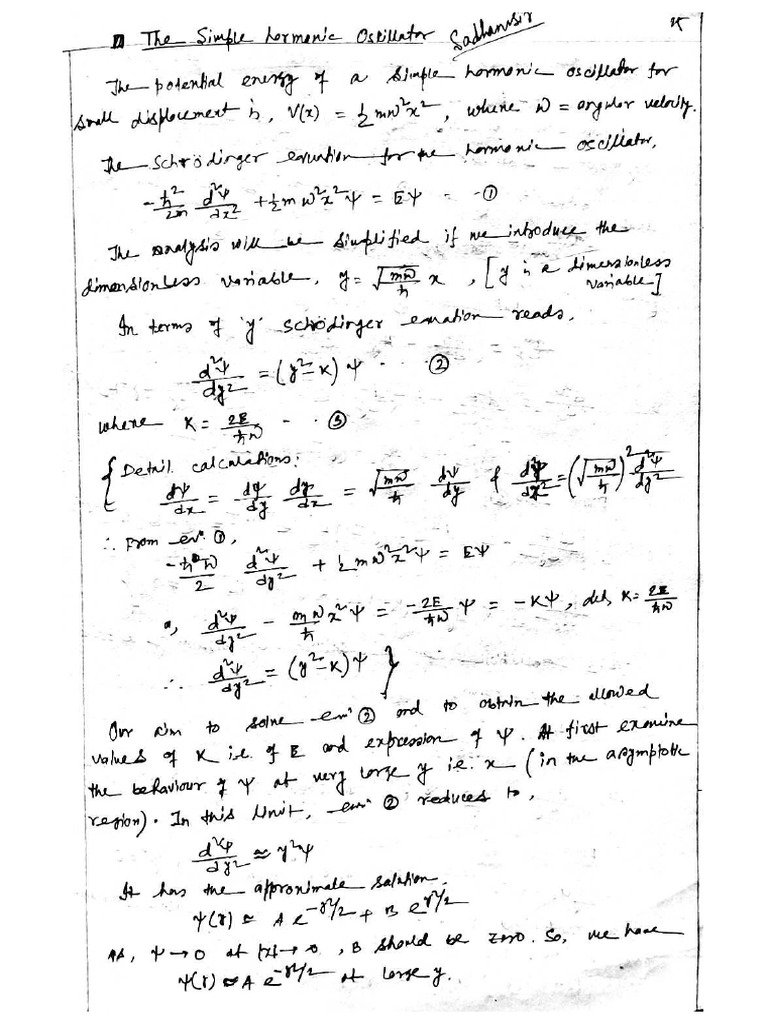 The Simple harmonic Oscillator Sadhansir
The potential energy of a simple harmonic oscillator for
small displacement is, V(x) = ½mω²x², where ω = angular velocity.
The Schrödinger equation for the harmonic oscillator,
-ħ²/2m d²ψ/dx² + ½mω²x²ψ = Eψ - - ①
The analysis will be simplified if we introduce the
dimensionless variable, y = √(mω/ħ) x, [y is a dimensionless
variable]
In terms of 'y' Schrödinger equation reads,
d²ψ/dy² = (y²-K)ψ - - - ②
where K = 2E/ħω - - - ③
{ Detail calculations:
dψ/dx = dψ/dy dy/dx = √(mω/ħ) dψ/dy & d²ψ/dx² = (√(mω/ħ))² d²ψ/dy²
∴ From eqn. ①,
-ħω/2 d²ψ/dy² + ½mω²x²ψ = Eψ
or, d²ψ/dy² - mω/ħ x²ψ = -2E/ħω ψ = -Kψ, K = 2E/ħω
∴ d²ψ/dy² = (y²-K)ψ }
Our aim to solve eqn ② and to obtain the allowed
values of K i.e. of E and expression of ψ. At first examine
the behaviour of ψ at very large y i.e. x (in the asymptotic
region). In this limit, eqn ② reduces to,
d²ψ/dy² ≈ y²ψ
It has the approximate solution.
ψ(y) ≈ A e^(-y²/2) + B e^(y²/2)
As, ψ→0 at |x|→∞, B should be zero. So, we have
ψ(y) ≈ A e^(-y²/2) at large y.